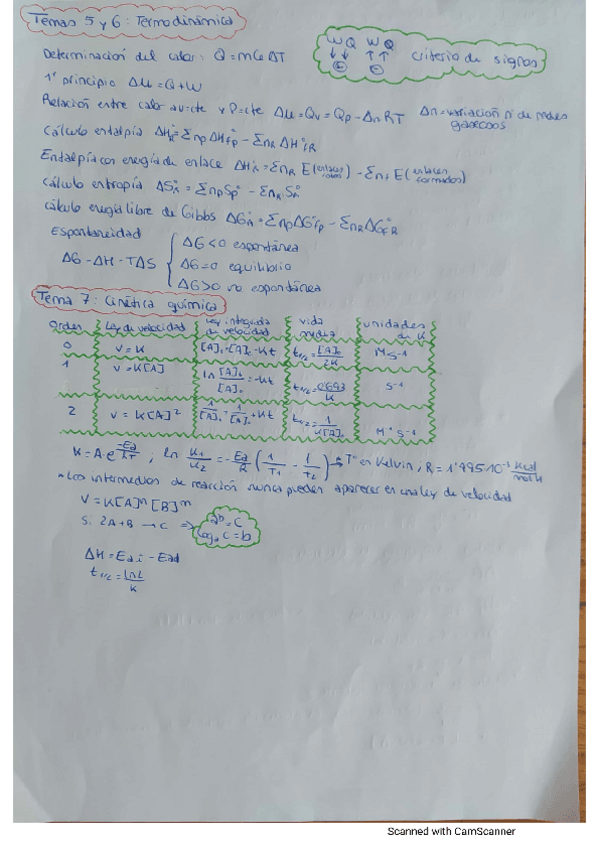 Temas 5 y 6: Termodinámica
W Q W Q
↓ ↓ ↑ ↑
⊕ ⊖
criterio de signos
Determinación del calor: Q = m Ce ΔT
1º principio ΔU = Q + W
Relación entre calor a v=cte y P=cte ΔU = Qv = Qp - Δn RT Δn = variación nº de moles gaseosos
Cálculo entalpía ΔHºR = Σnp ΔHºfp - ΣnR ΔHºfR
Entalpía con energía de enlace ΔHºR = ΣnR E(enlaces rotos) - Σnf E(enlaces formados)
Cálculo entropía ΔSºR = Σnp Sºp - ΣnR SºR
cálculo energía libre de Gibbs ΔGºR = Σnp ΔGºfp - ΣnR ΔGºfR
Espontaneidad
ΔG - ΔH - TΔS
ΔG < 0 espontánea
ΔG = 0 equilibrio
ΔG > 0 no espontánea
Tema 7: Cinética química
Orden Ley de velocidad Ley integrada de velocidad vida media unidades de K
0 v = K [A]t = [A]o - Kt t1/2 = [A]o/2K M s-1
1 v = K[A] ln [A]t/[A]o = -Kt t1/2 = 0'693/K s-1
2 v = K[A]² 1/[A]t = 1/[A]o + Kt t1/2 = 1/K[A]o M-1 s-1
K = A·e^(-Ea/RT) ; ln K1/K2 = -Ea/R (1/T1 - 1/T2) → Tª en Kelvin, R = 1'995·10-3 Kcal/mol K
Los intermedios de reacción nunca pueden aparecer en una ley de velocidad
V = K[A]ⁿ [B]ᵐ
Si 2A + B → C ⇒
aᵇ = c
loga c = b
ΔH = Eai - Ead
t1/2 = Ln2/K
Scanned with CamScanner